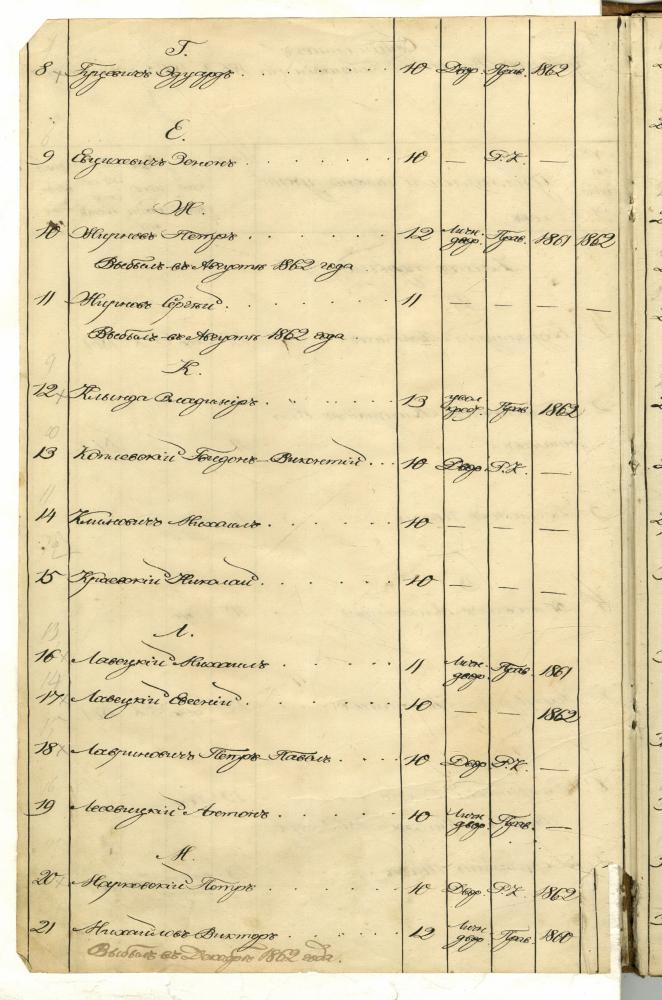 Г.
8 Гуцевичъ Эдуардъ 10 Двор. Прав. 1862
Е.
9 Евциховичъ Зенонъ 10 — Р.К. —
Ж.
10 Жирновъ Петръ 12 Личн. двор. Прав. 1861 1862
Выбылъ въ Августѣ 1862 года
11 Жирновъ Сергѣй 11 — — — —
Выбылъ въ Августѣ 1862 года
К.
12 Клында Владиміръ 13 Прав. 1862
13 Викентій 10 Двор. Р.К. —
14 Климовичъ Михаилъ 10 — — —
15 Краевскій Николай 10 — — —
Л.
16 Лавецкій Михаилъ 11 Личн. двор. Прав. 1861
17 Лавецкій Евгеній 10 — — 1862
18 Лавриновичъ Петръ Павелъ 10 Двор. Р.К. —
19 Лесевицкій Антонъ 10 Личн. двор. Прав. —
М.
20 Марковскій Петръ 10 Двор. Р.К. 1862
21 Михайловъ Викторъ 12 Личн. двор. Прав. 1860
Выбылъ въ Декабрѣ 1862 года.